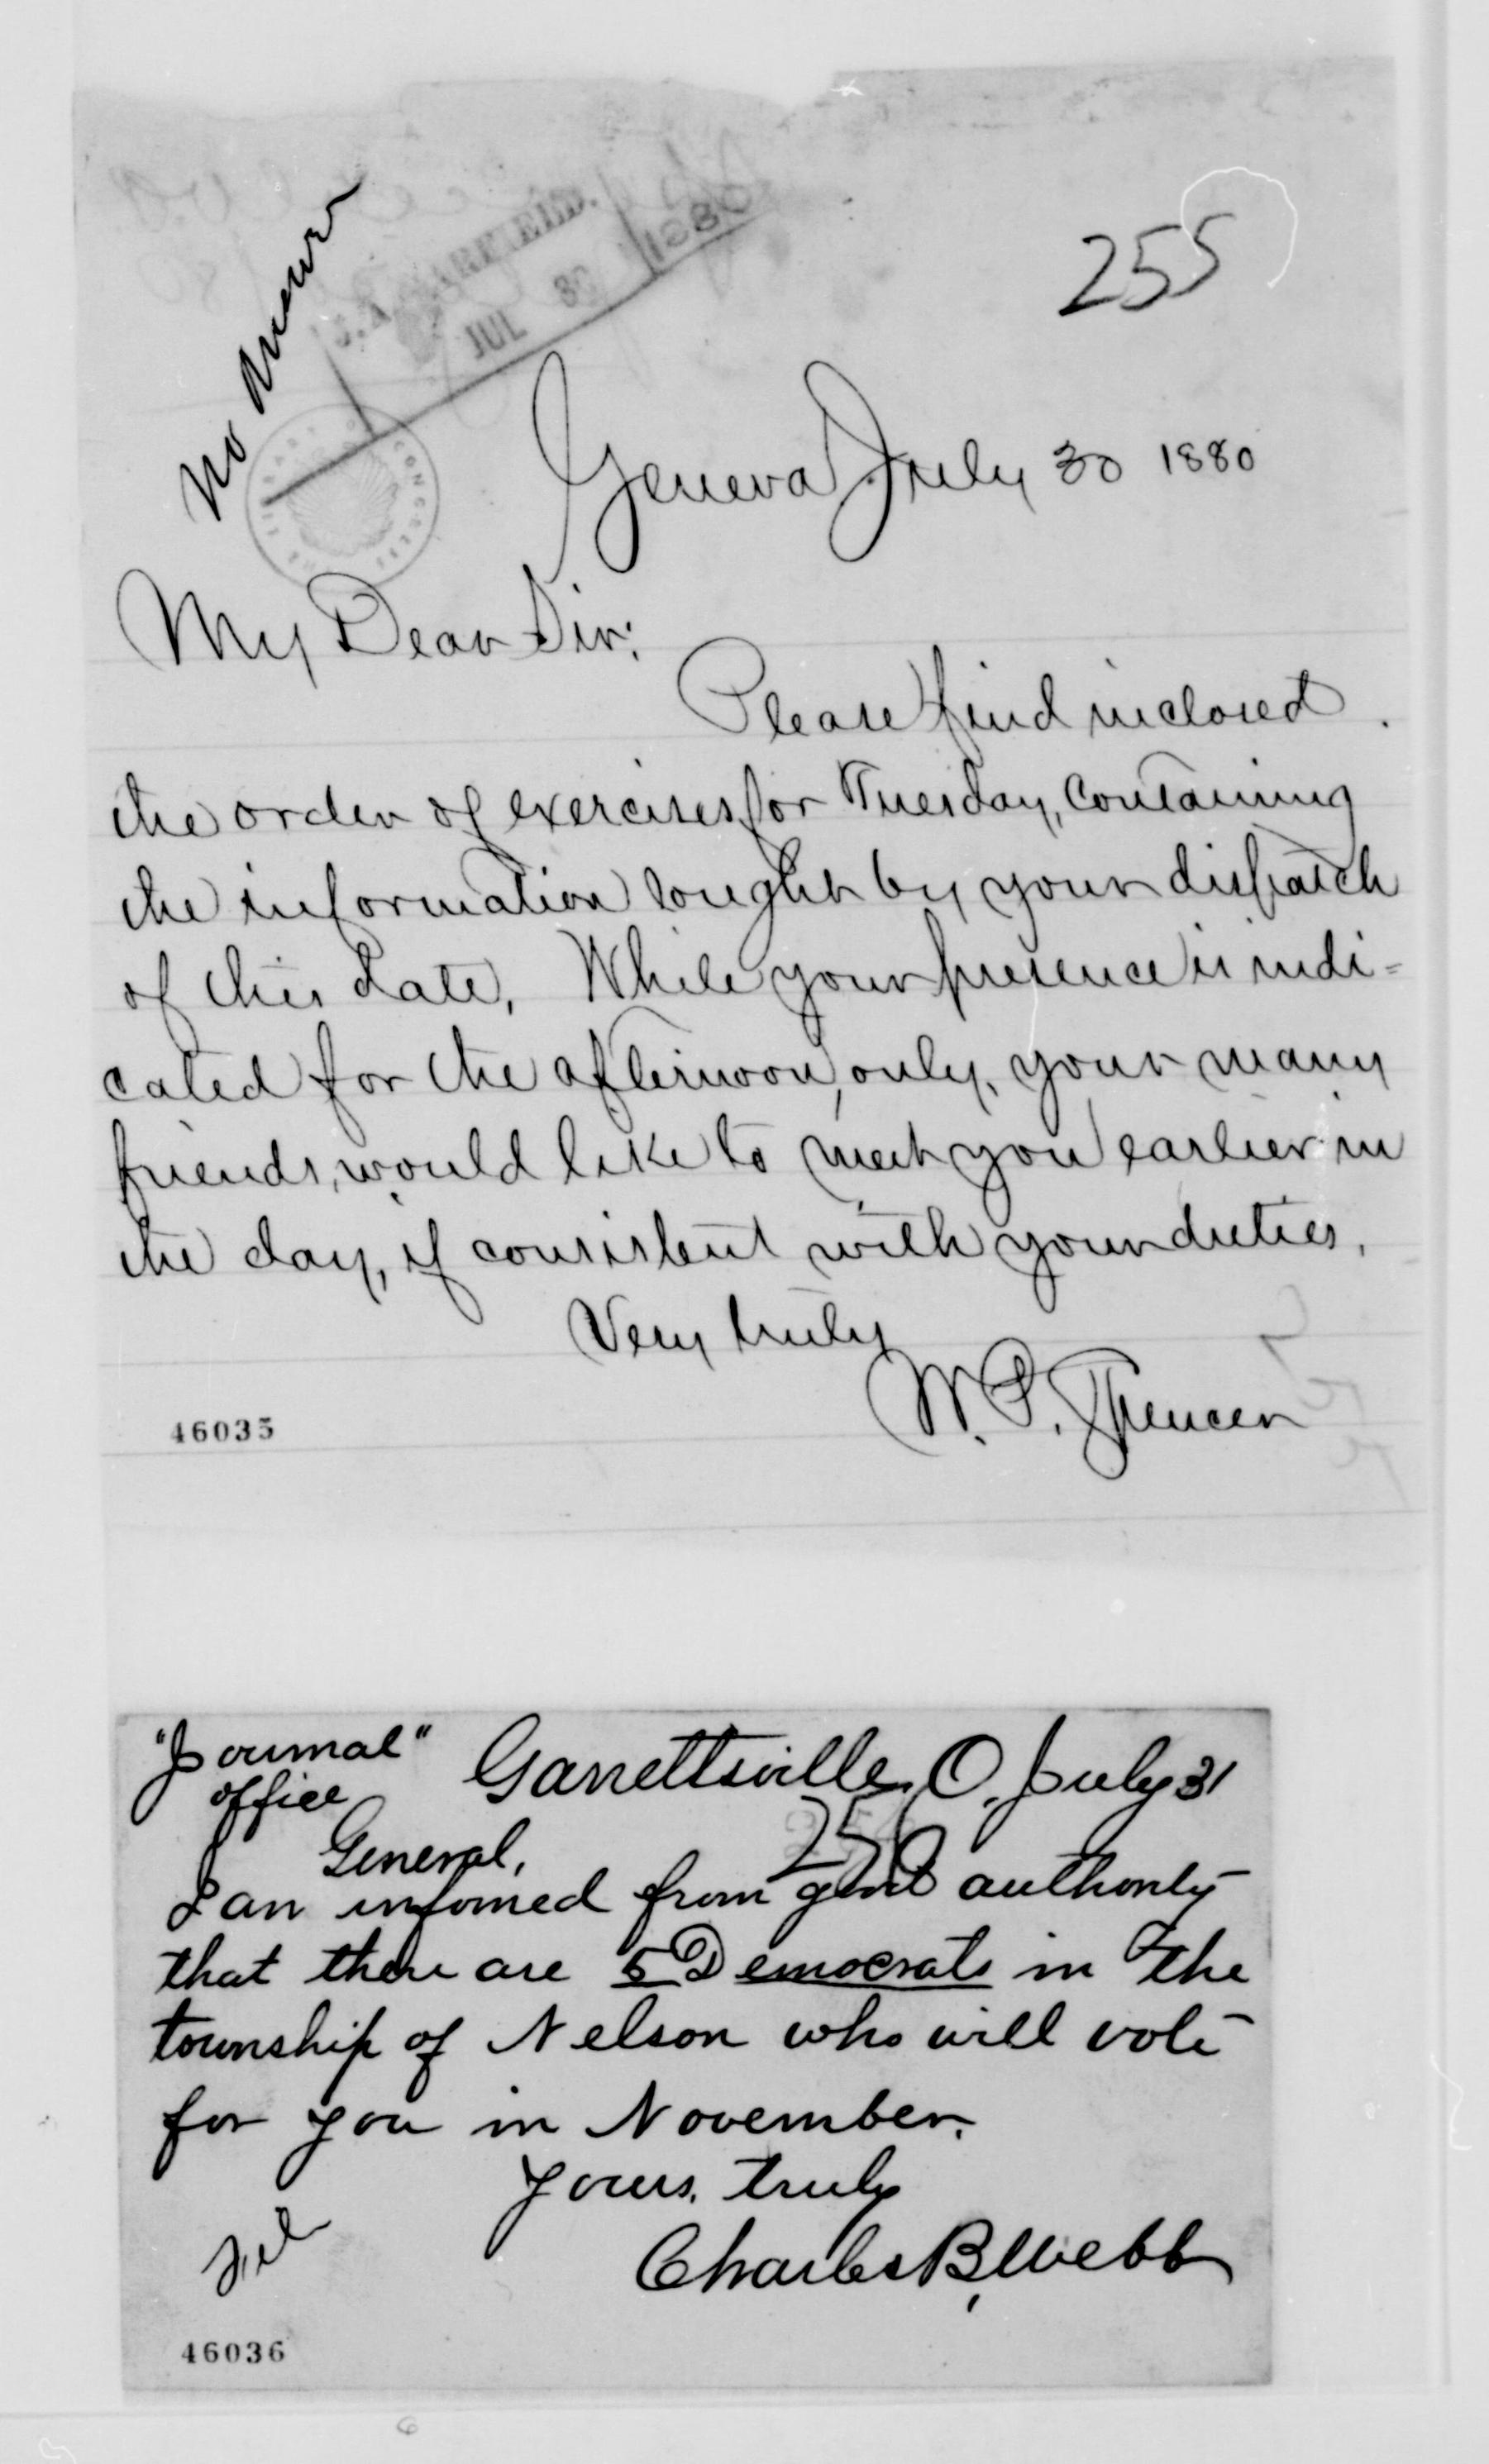 No Answer
J.A. GARFIELD.
JUL 30 1880
255
THE LIBRARY OF CONGRESS
Geneva July 30 1880
My Dear Sir:
Please find inclosed
the order of exercises for Tuesday, containing
the information sought by your dispatch
of this date. While your presence is indi=
cated for the afternoon, only, your many
friends, would like to meet you earlier in
the day, if consistent with your duties.
Very truly
W. P. Spencer
46035
"Journal" Garrettsville, O. July 31
office
256
General,
I am informed from good authority
that there are 5 Democrats in the
township of Nelson who will vote
for you in November.
Yours truly
Charles B. Webb
46036